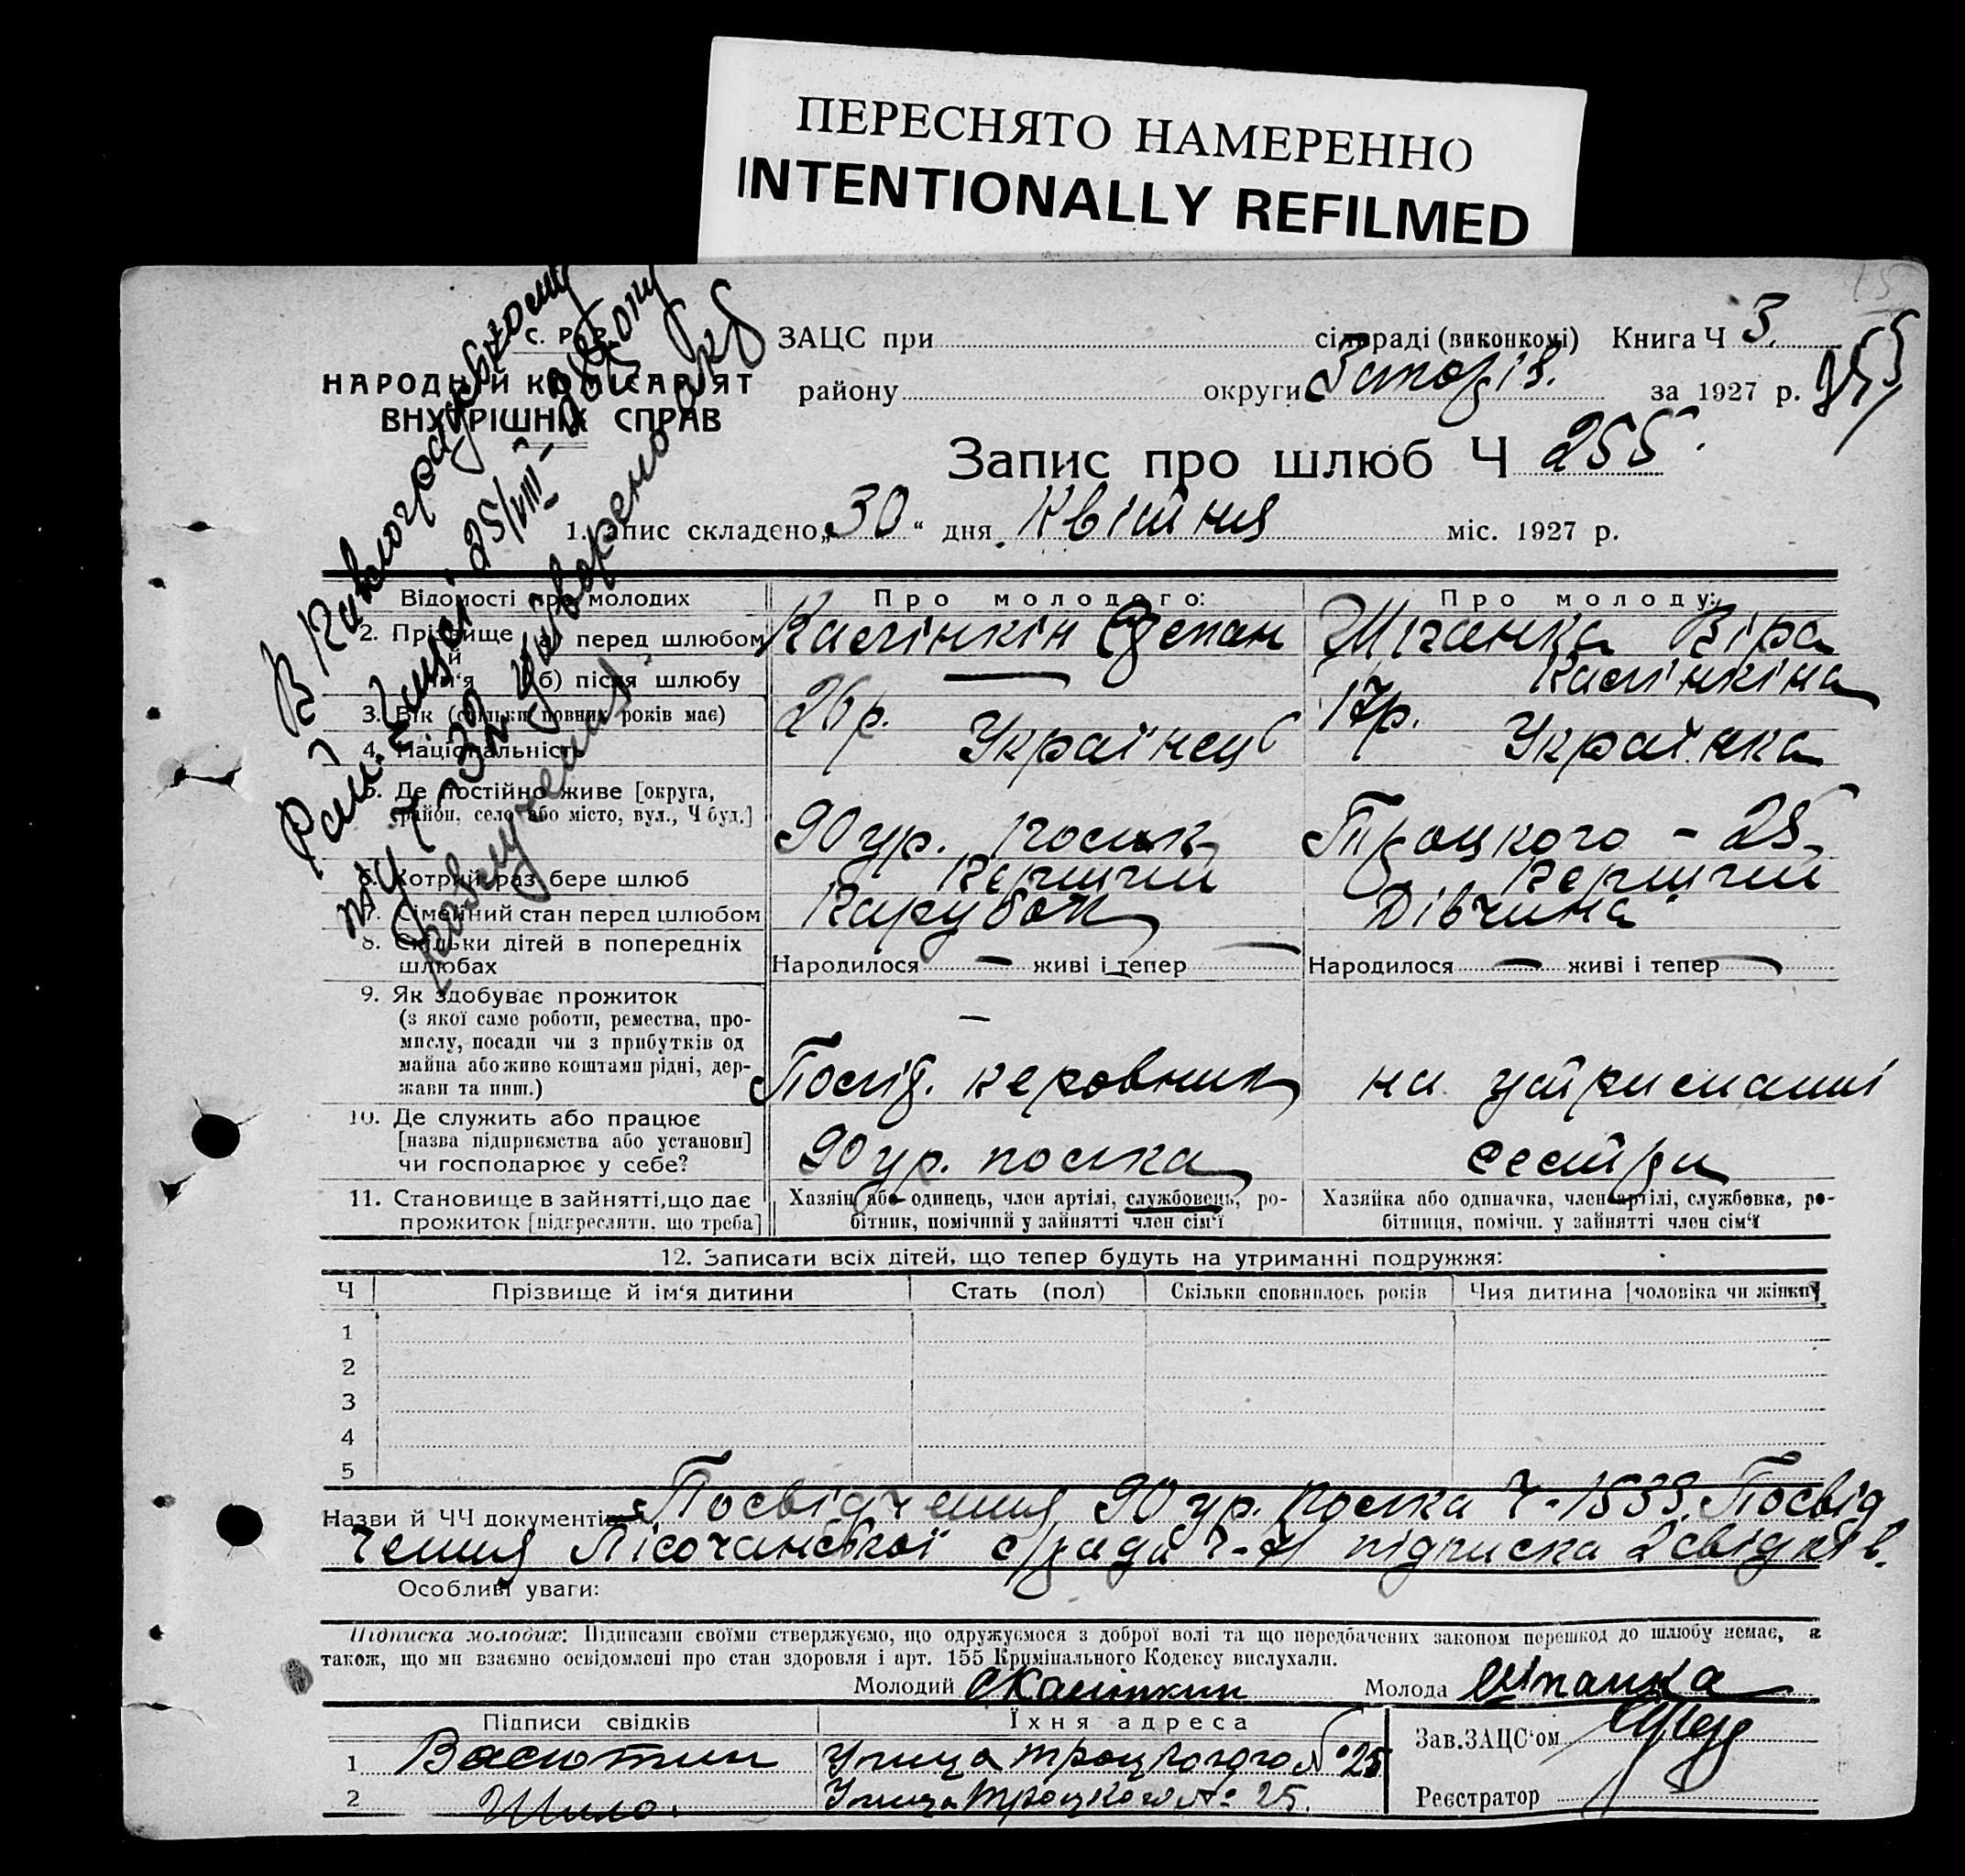 ПЕРЕСНЯТО НАМЕРЕННО
INTENTIONALLY REFILMED
НАРОДНИЙ КОМІСАРІЯТ
ВНУТРІШНІХ СПРАВ
ЗАЦС при сільраді (виконкомі) Книга Ч 3.
району округи за 1927 р. 255
Запис про шлюб Ч 255.
1. Запис складено „30“ дня Квітня міс. 1927 р.
Відомості про молодих Про молодого: Про молоду:
2. Прізвище й ім'я а) перед шлюбом Степан Віра
б) після шлюбу —
3. Вік (скільки повних років має) 26 р. 17 р.
4. Національність Українець Українка
5. Де постійно живе [округа,
район, село або місто, вул., Ч буд.] 90 Троцкого - 25
6. Котрий раз бере шлюб Перший Перший
7. Сімейний стан перед шлюбом Парубок Дівчина
8. Скільки дітей в попередніх
шлюбах Народилося — живі і тепер — Народилося — живі і тепер —
9. Як здобуває прожиток
(з якої саме роботи, ремества, про-
мислу, посади чи з прибутків од
майна або живе коштами рідні, дер-
жави та инш.) керовник на утриманні
10. Де служить або працює
[назва підприємства або установи]
чи господарює у себе? 90 полка сестри
11. Становище в зайнятті, що дає
прожиток [підкреслити, що треба]
Хазяїн або одинець, член артілі, службовець, ро-
бітник, помічний у зайнятті член сім'ї
Хазяйка або одиначка, член артілі, службовка, ро-
бітниця, помічн. у зайнятті член сім'ї
12. Записати всіх дітей, що тепер будуть на утриманні подружжя:
Ч Прізвище й ім'я дитини Стать (пол) Скільки сповнилось років Чия дитина [чоловіка чи жінки]
1
2
3
4
5
Назви й ЧЧ документів Посвідчення 90 полка Ч- Посвід
чення Лісочанської с/ради Ч- підписка 2 свідків.
Особливі уваги:
Підписка молодих: Підписами своїми стверджуємо, що одружуємося з доброї волі та що передбачених законом перешкод до шлюбу немає, а
також, що ми взаємно освідомлені про стан здоровля і арт. 155 Кримінального Кодексу вислухали.
Молодий Молода
Підписи свідків Їхня адреса
1 Васютин Улица Троцкого № 25
2 Шило. Улица Троцкого № 25.
Зав. ЗАЦС'ом
Реєстратор